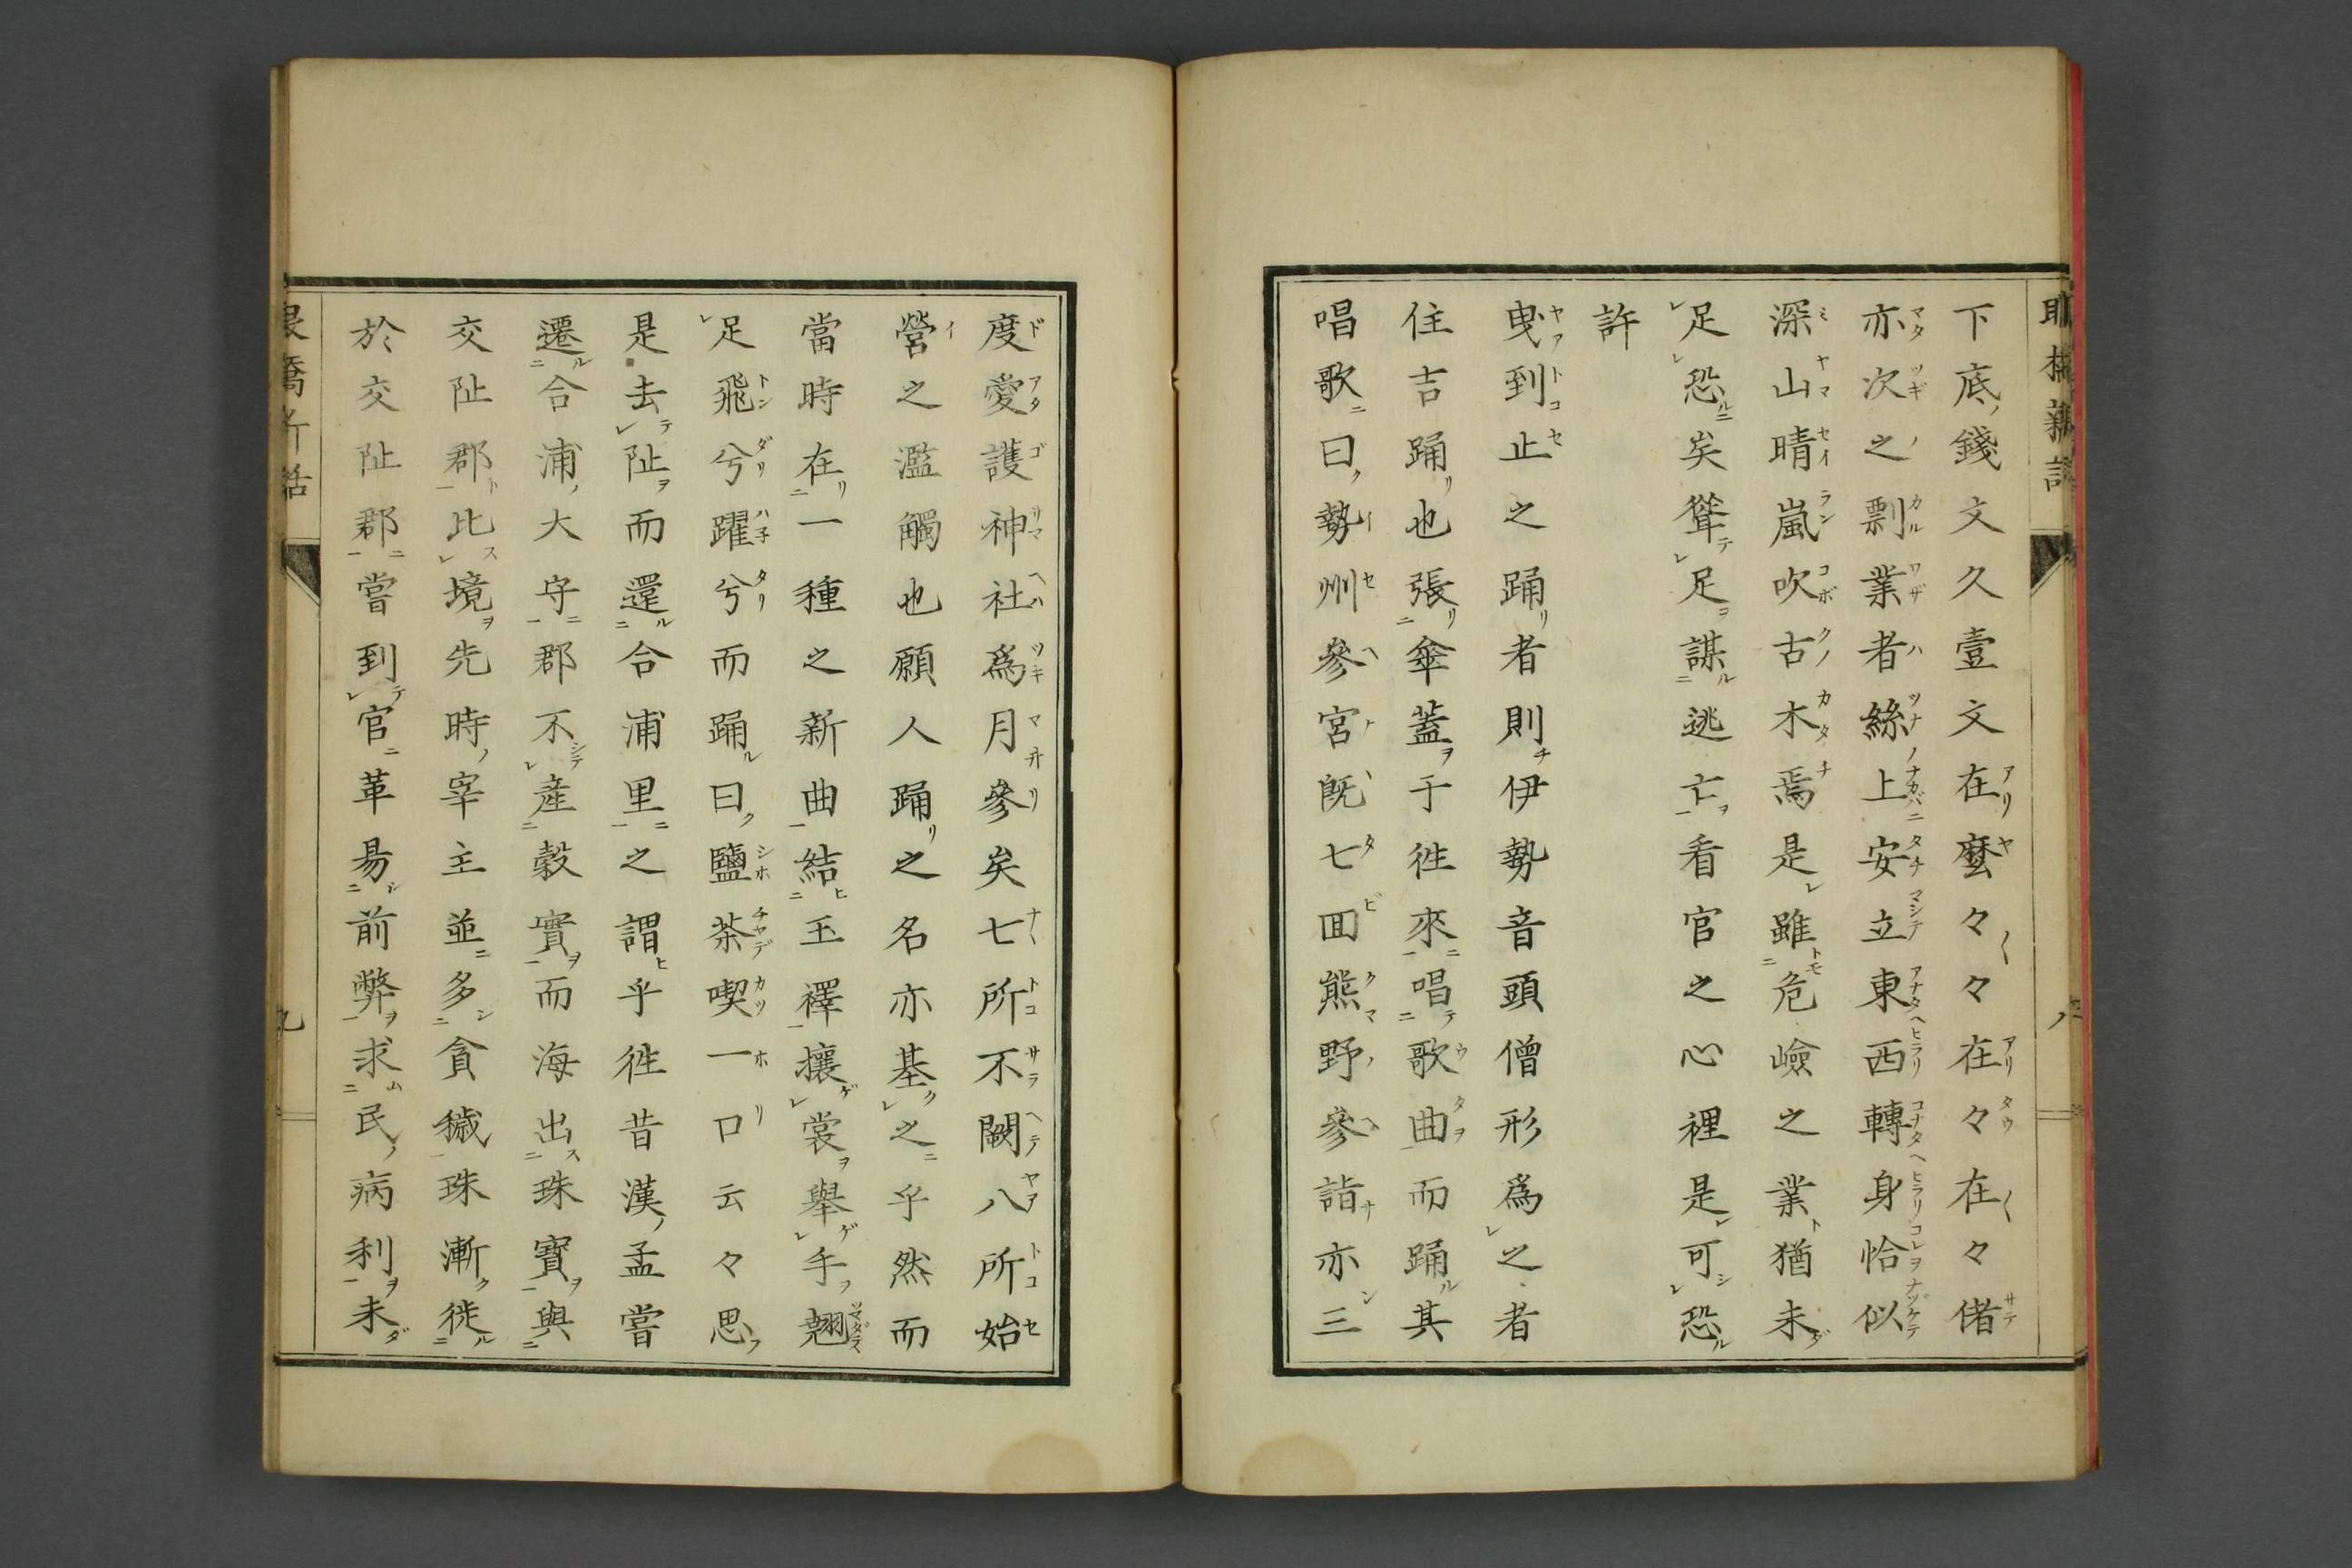 下底錢文久壹文在麼々々在々在々偖
亦次之剽業者絲上安立東西轉身恰似
深山晴嵐吹古木焉是雖危嶮之業猶未
足恐矣聳足謀逃亡看官之心裡是可恐
許
曳到止之踊者則伊勢音頭僧形爲之者
住吉踊也張傘蓋于徃來唱歌曲而踊其
唱歌曰勢州參宮既七回熊野參詣亦三
度愛護神社爲月參矣七所不闕八所始
營之濫觴也願人踊之名亦基之乎然而
當時在一種之新曲結玉襷攘裳舉手翹
足飛兮躍兮而踊曰鹽茶喫一口云々思
是去阯而還合浦里之謂乎徃昔漢孟嘗
遷合浦大守郡不產穀實而海出珠寶與
交阯郡比境先時宰主並多貪穢珠漸徙
於交阯郡嘗到官革易前弊求民病利未
九